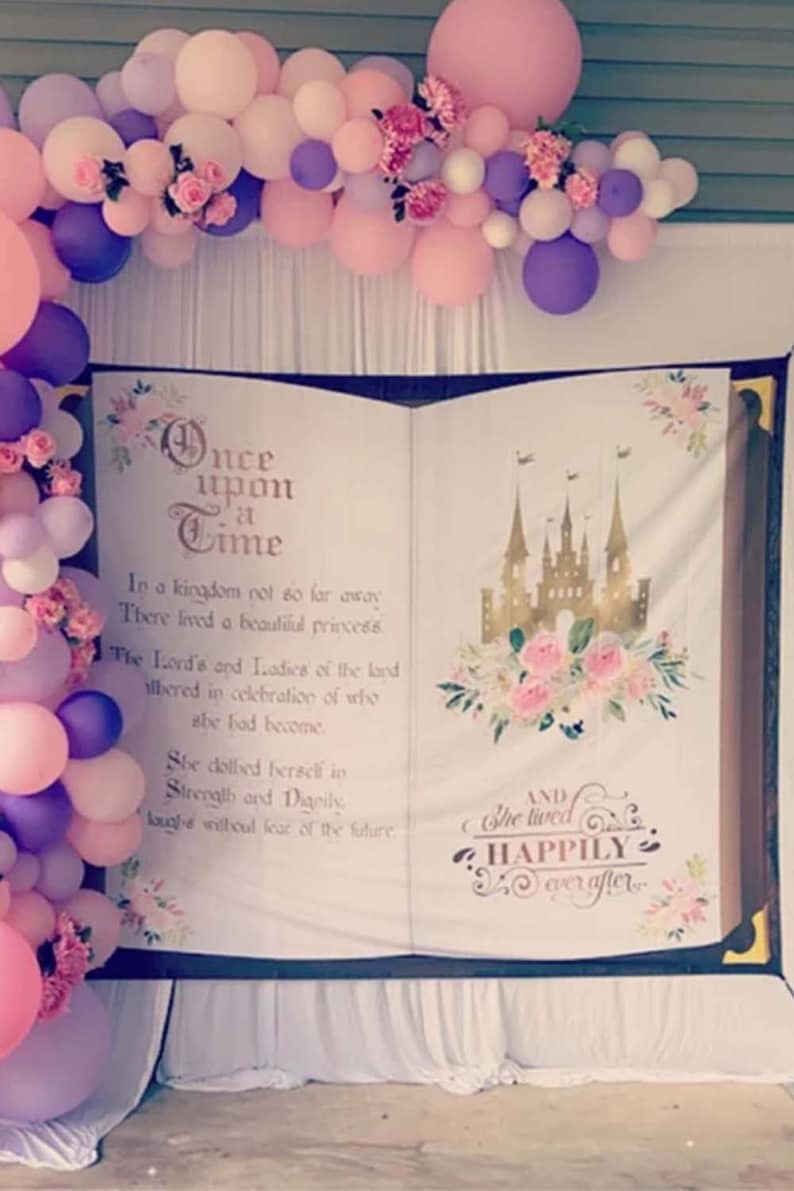 Once
upon
a
Time
In a kingdom not so far away
There lived a beautiful princess.
The Lord's and Ladies of the land
in celebration of who
she had become.
She clothed herself in
Strength and Dignity.
laughs without fear of the future.
AND
She lived
HAPPILY
ever after